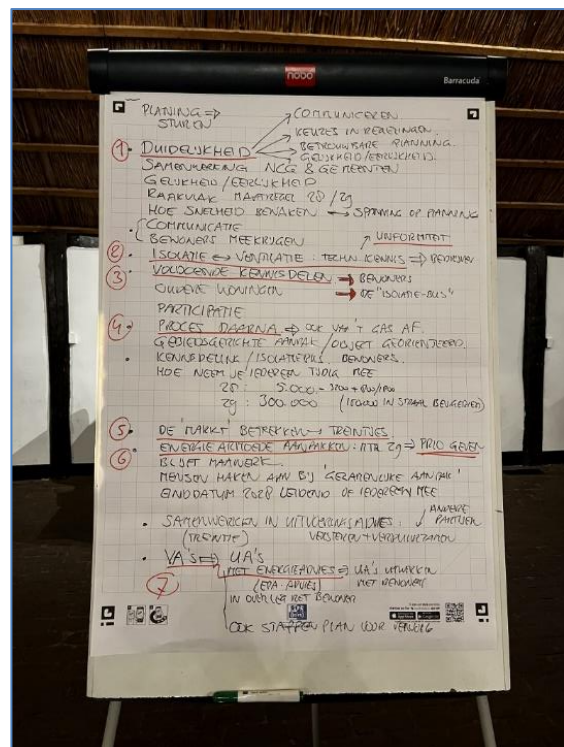 nobo
Barracuda
PLANING ⇒ STUREN
→ COMMUNICEREN.
→ KEUZES IN REGELINGEN.
→ BETROUWBARE PLANNING
→ GELIJKHEID/EERLIJKHEID.
① DUIDELIJKHEID
SAMENWERKING NCG & GEMEENTEN
GELIJKHEID/EERLIJKHEID
RAAKVLAK MAATREGEL 28/29
HOE SNELHEID BEWAKEN ↔ SPANNING OP PLANNING
COMMUNICATIE
BEWONERS MEEKRIJGEN
UNIFORMITEIT
② ISOLATIE ↔ VENTILATIE: TECHN. KENNIS ⇒ BEWONER
③ VOLDOENDE KENNIS DELEN → BEWONERS
OUDERE WONINGEN → DE "ISOLATIE-BUS"
PARTICIPATIE
④ PROCES DAARNA ⇒ OOK VAN 'T GAS AF.
GEBIEDSGERICHTE AANPAK/OBJECT GEORIENTEERD.
KENNISDELING/ISOLATIEBUS. BEWONERS.
HOE NEEM JE IEDEREEN TIJDIG MEE
28: 5.000
29: 300.000
⑤ DE 'MARKT' BETREKKEN → TREINTJES.
ENERGIE ARMOEDE AANPAKKEN: MTR 29 ⇒ PRIO GEVEN
⑥ BLIJFT MAATWERK.
MENSEN HAKEN AAN BIJ 'GEZAMENLIJKE AANPAK'
EINDDATUM 2028 LEIDEND OF IEDEREEN MEE
ANDERE PARTIJEN
SAMENWERKEN IN UITVOERINGSADVIES.
(TREINTJE)
VERSTERKEN + VERDUURZAMEN
VA'S ⇔ UA'S
⑦ MET ENERGIEADVIES ⇒ UA'S UITWERKEN
(EPA-ADVIES) MET BEWONERS
IN OVERLEG MET BEWONER
OOK STAPPENPLAN VOOR VERVOLG